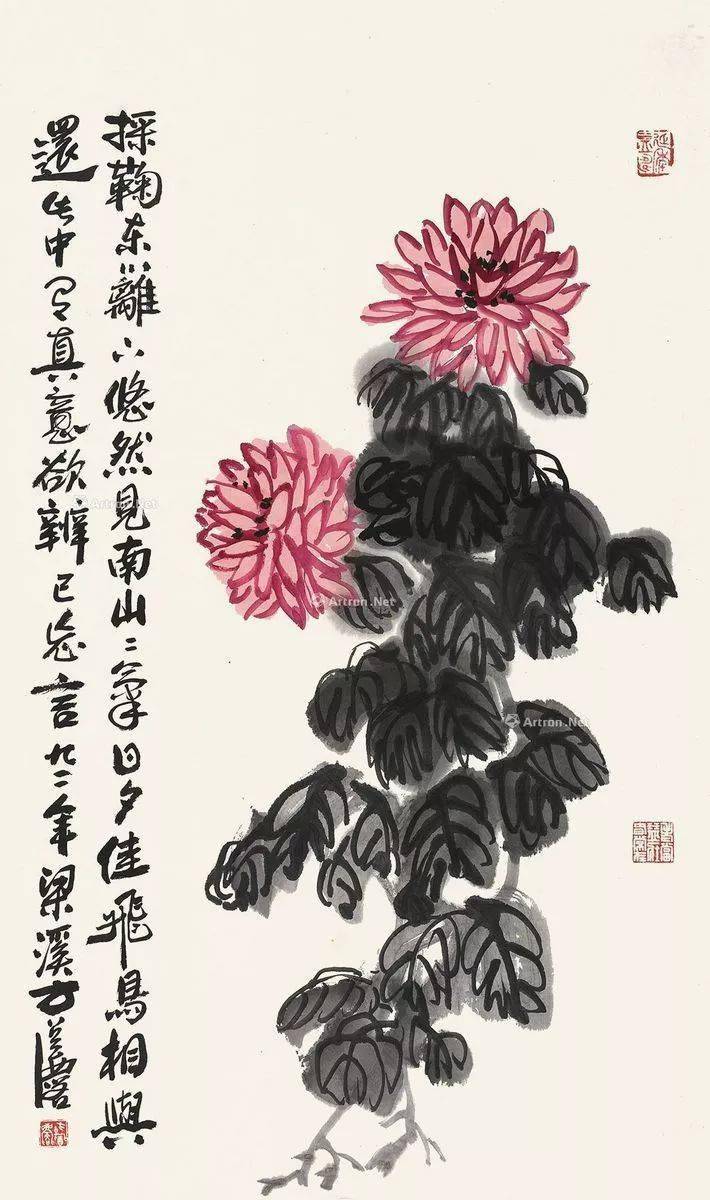 採鞠东籬下悠然見南山山氣日夕佳飛鳥相與
還此中有真意欲辨已忘言九二年梁溪
Artron.Net
Artron.Net
Artron.Net